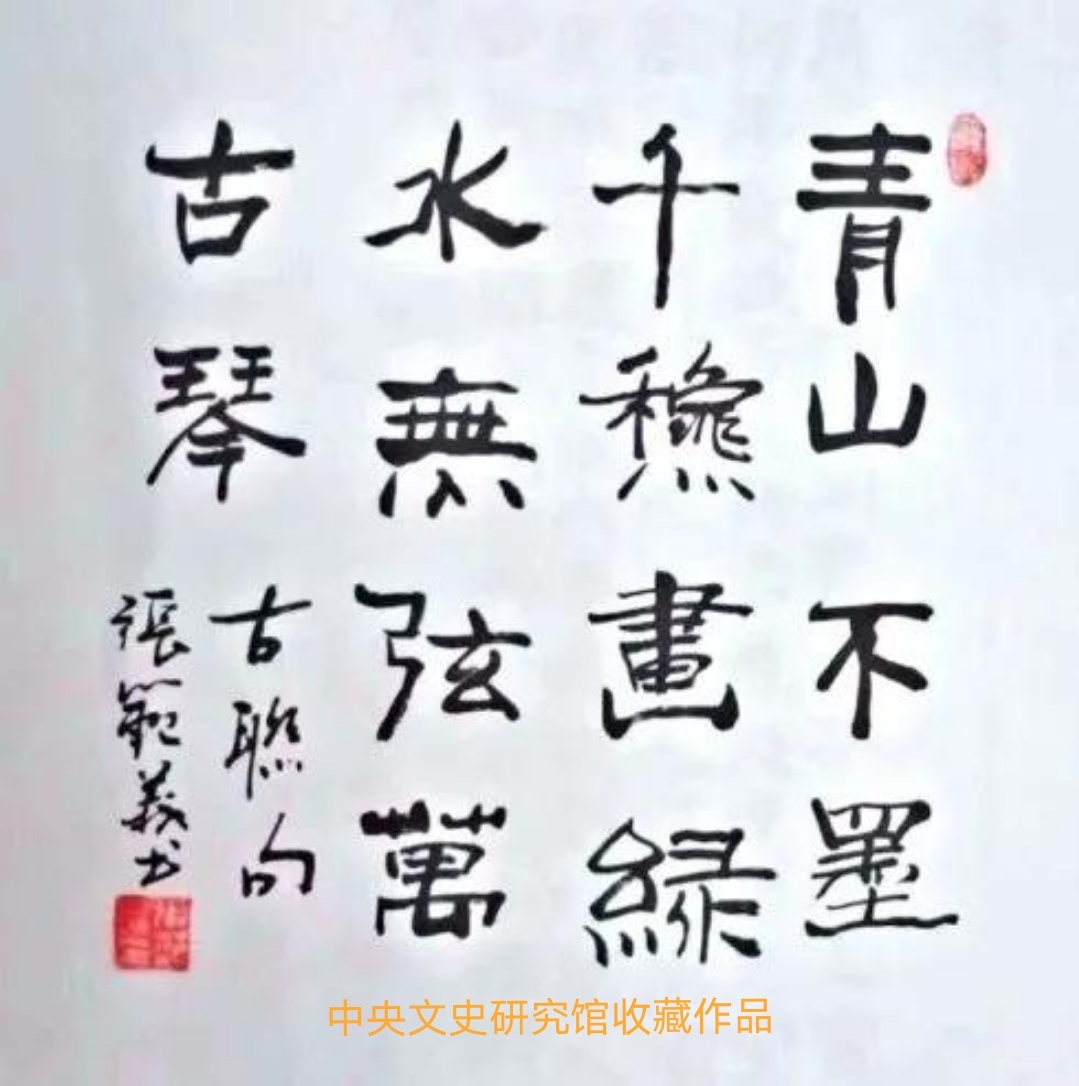 青山不墨
千龝畫綠
水無弦萬
古琴
古聯句
張範義书
中央文史研究馆收藏作品